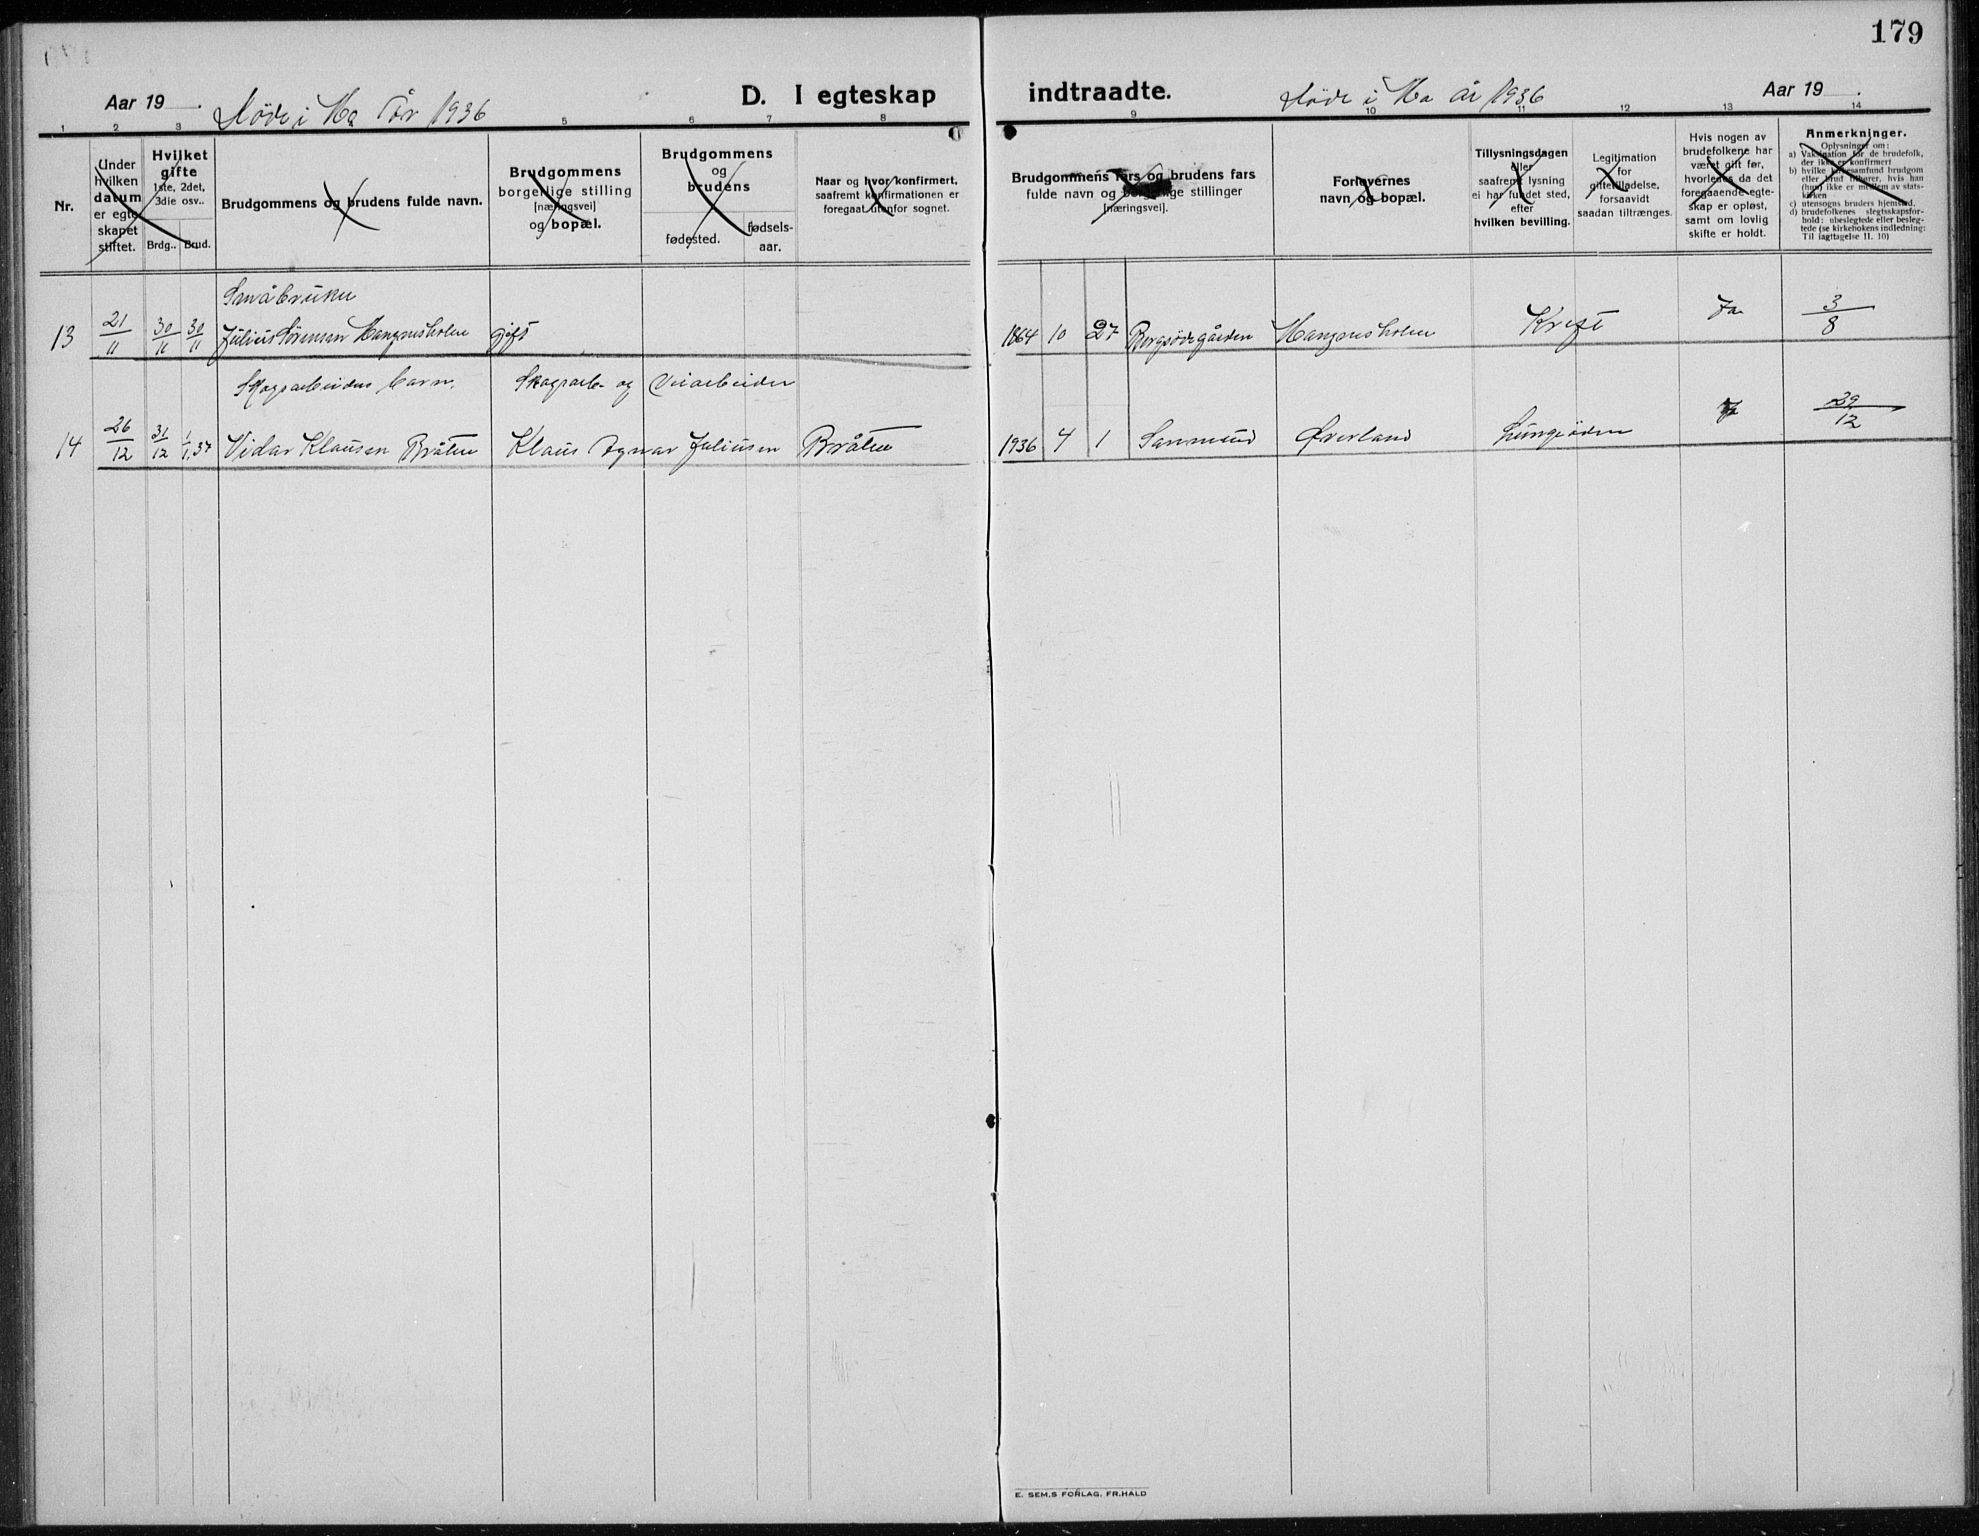 179
Aar 19
Døde i Ma År 1936
D. I egteskap
indtraadte.
Døde i Ma År 1936
Aar 19
1 2 3 5 6 7 8 9 10 11 12 13 14
Nr.
Under
hvilken
datum
er egte-
skapet
stiftet.
Hvilket
gifte
1ste, 2det,
3die osv..
Brdg.. Brud.
Brudgommens og brudens fulde navn.
Brudgommens
borgerlige stilling
[næringsvei]
og bopæl.
Brudgommens
og
brudens
fødested.
fødsels-
aar.
Naar og hvor konfirmert,
saafremt konfirmationen er
foregaat utenfor sognet.
Brudgommens fars og brudens fars
fulde navn og borgerlige stillinger
[næringsvei].
Forlovernes
navn og bopæl.
Tillysningsdagen
eller
saafremt lysning
ei har fundet sted,
efter
hvilken bevilling.
Legitimation
for
giftetilladelse,
forsaavidt
saadan tiltrænges.
Hvis nogen av
brudefolkene har
været gift før,
hvorledes da det
foregaaende egte-
skap er opløst,
samt om lovlig
skifte er holdt.
Anmerkninger.
Oplysninger om:
a) Vaksination for de brudefolk,
der ikke er konfirmert
b) hvilke kirkesamfund brudgom
eller brud tilhører, hvis han
(hun) ikke er medlem av stats-
kirken
c) utensogns bruders hjemsted,
d) brudefolkenes slegtsskapsfor-
hold: ubeslegtede eller besleg-
tede (se kirkebokens indledning:
Til iagttagelse II. 10)
Småbruker
13 21/11 30/11 30/11 Julius Sørensen Mangnusholen gift 1864 10 27 Bergsjøgården Mangnusholen Kreft Ja 3/8
Skogsarbeiders barn. Skogsarb- og Veiarbeider
14 26/12 31/12 1/1,37 Vidar Klausen Bråten Klaus Agnar Juliusen Bråten 1936 4 1 Sanmund Øverland 29/12
E. SEM.S FORLAG, FR.HALD